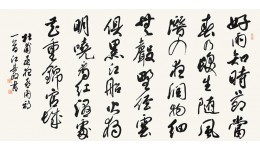 好雨知時節當
春乃發生隨風
潛入夜潤物細
無聲野徑雲
俱黑江船火獨
明曉看紅濕處
花重錦官城
杜甫春夜喜雨